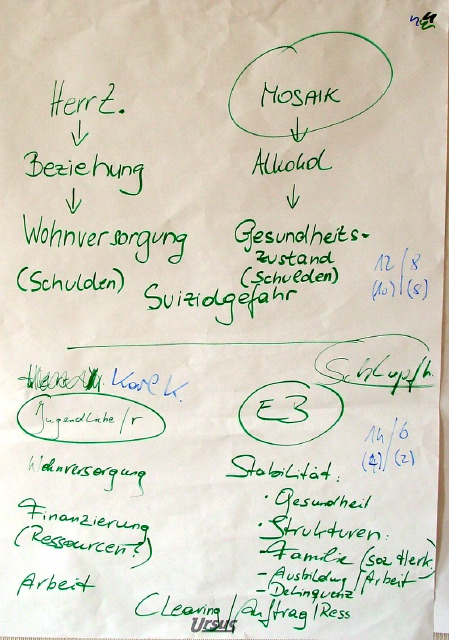 Herr Z.
Beziehung
Wohnversorgung
(Schulden)
MOSAIK
Alkohol
Gesundheits-
zustand
(Schulden)
Suizidgefahr
12/8
(10) (8)
Schlupf/h.
Karl K.
Jugendliche/r
Wohnversorgung
Finanzierung
(Ressourcen?)
Arbeit
EB
14/6
(4) (2)
Stabilität:
· Gesundheit
· Strukturen:
- Familie (soz Herk.)
- Ausbildung/Arbeit
- Delinquenz
Clearing/Auftrag/Ress
Ursus